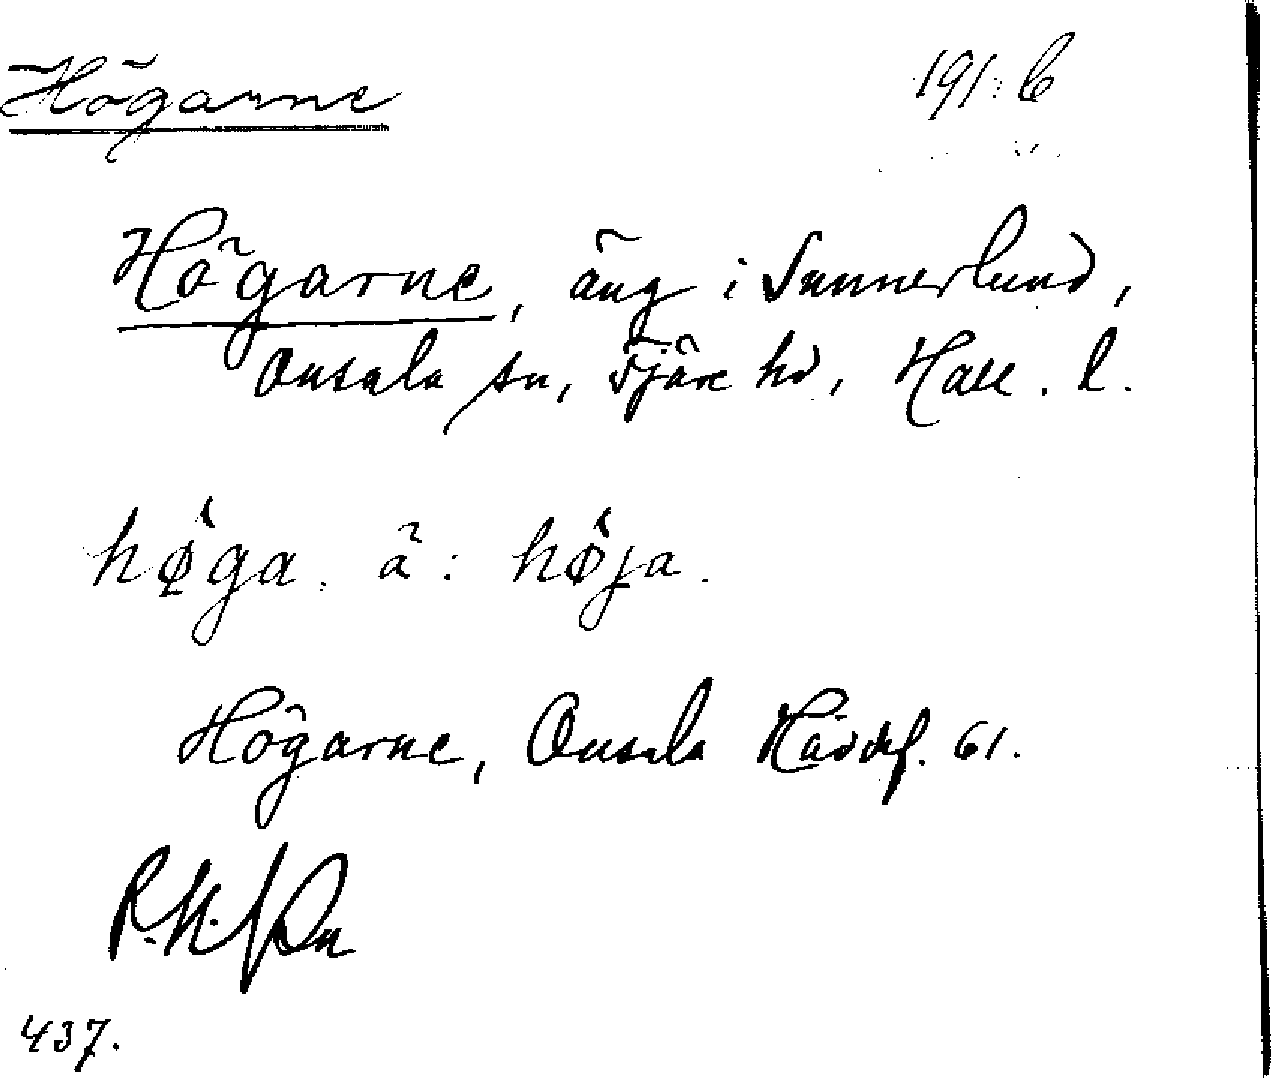 Högarne 191:6
Högarne, äng i Sunnerlund,
Onsala sn, Fjäre hd, Hall. l.
hø̀ga. ä: hø̀ja.
Högarne, Onsala Hävdef. 61.
437.